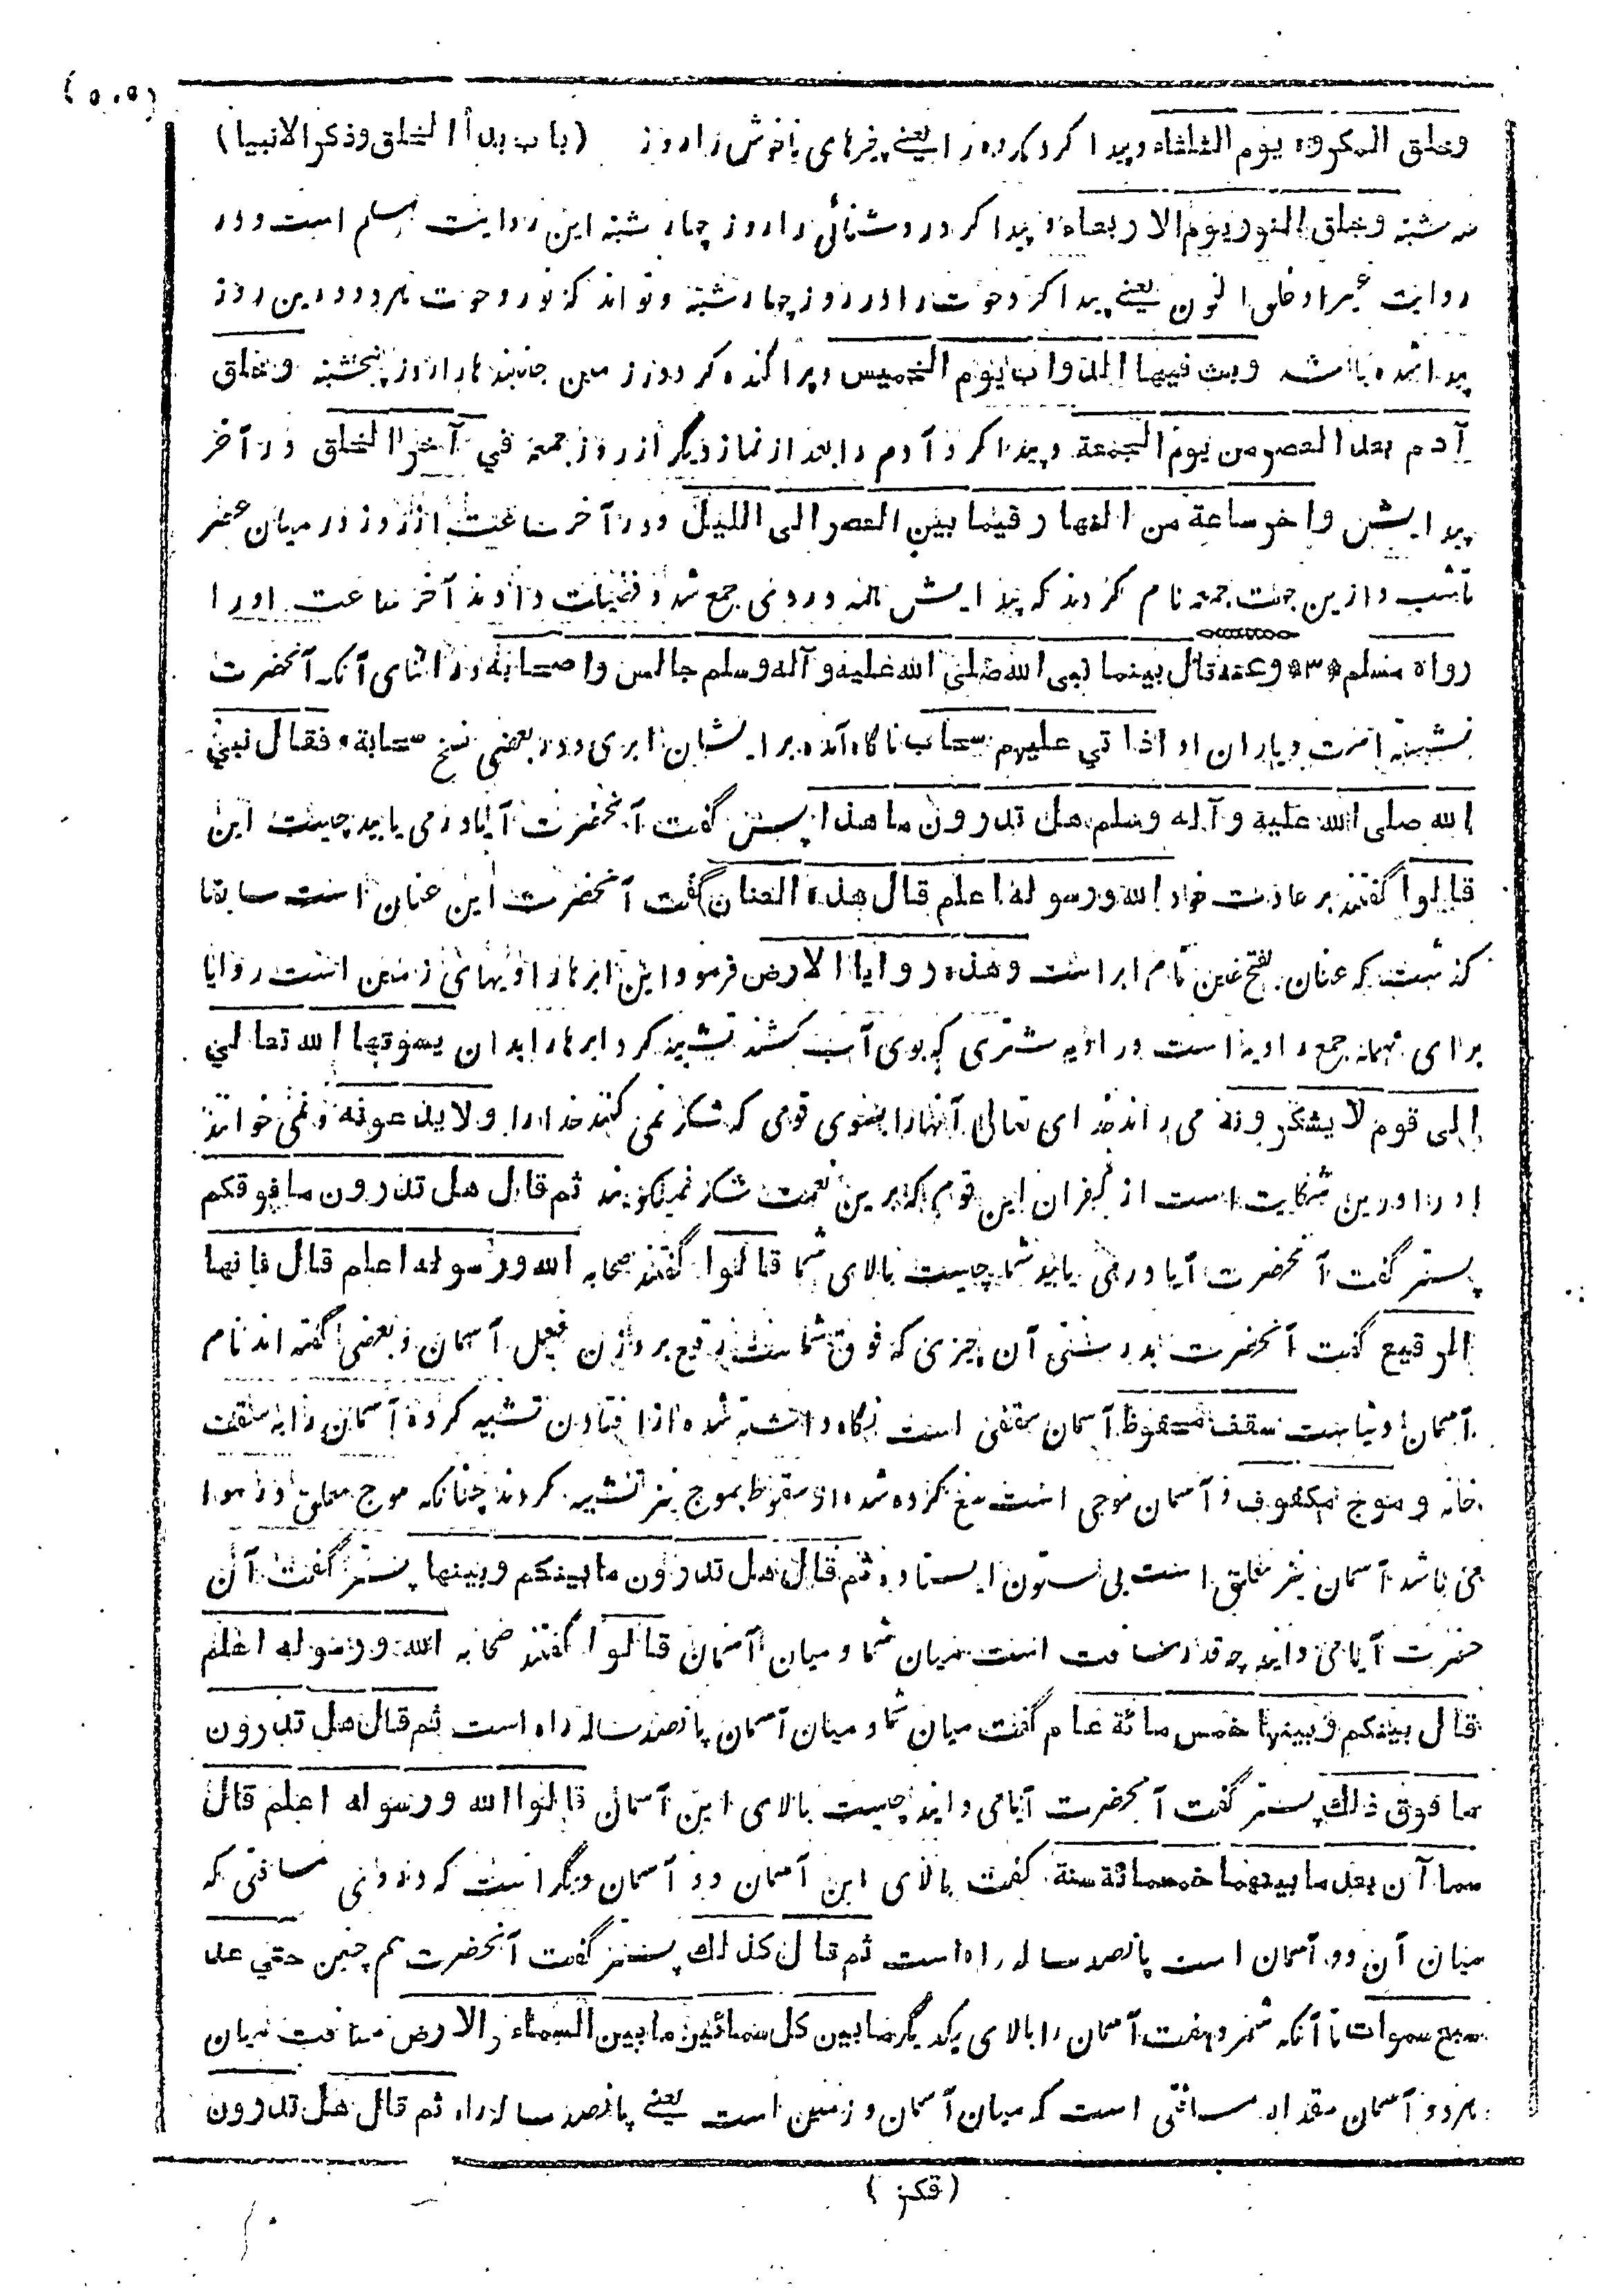 (٥٠٥)
وخلق المكروه يوم الثلثاء و پیدا کرد مکروه را یعنی چیزهای ناخوش را روز (باب بدأ الخلق وذكر الانبيا)
سه شنبه وخلق النور يوم الاربعاء و پیدا کرد روشنائی را روز چهار شنبه این روایت مسلم است و در
روایت غیر او خلق النون یعنی پیدا کرد حوت را در روز چهار شنبه و تواند که نور و حوت هر دو درین روز
پیدا شده باشد وبث فيها الدواب يوم الخميس و پراکنده کرد در زمین جانبندها را روز پنجشنبه وخلق
آدم بعد العصر من يوم الجمعة و پیدا کرد آدم را بعد از نماز دیگر از روز جمعه في آخر الخلق در آخر
پیدایش واخر ساعة من النهار فيما بين العصر الى الليل و در آخر ساعت از روز در میان عصر
تا شب و ازین جهت جمعه نام کردند که پیدایش همه در وی جمع شد و فضیلت دادند آخر ساعت او را
رواه مسلم * ٣ * وعنه قال بينما نبي الله صلى الله عليه وآله وسلم جالس واصحابه در اثنای آنکه آنحضرت
نشسته است و یاران او اذا تي عليهم سحاب ناگاه آمد بر ایشان ابری و در بعضی نسخ سحابة فقال نبي
الله صلى الله عليه وآله وسلم هل تدرون ما هذا پس گفت آنحضرت آیا در می یابید چیست این
قالوا گفتند بر عادت خود الله ورسوله اعلم قال هذه العنان گفت آنحضرت این عنان است سابقا
گذشت که عنان بفتح عین نام ابر است وهذه روايا الارض فرمود این ابرها راویهای زمین است روایا
برای مهمله جمع راویه است و راویه شتری که بوی آب کشند تشبیه کرد ابرها را بدان يسوقها الله تعالي
الى قوم لا يشكرونه می راند خدای تعالی آنها را بسوی قومی که شکر نمی کنند خدا را ولا يدعونه و نمی خوانند
او را درین شکایت است از کفران این قوم که برین نعمت شکر نمیگویند ثم قال هل تدرون ما فوقكم
پستر گفت آنحضرت آیا در می یابید شما چیست بالای شما قالوا گفتند صحابه الله ورسوله اعلم قال فانها
الرقيع گفت آنحضرت بدرستی آن چیزی که فوق شماست رقیع بر وزن فعیل آسمان و بعضی گفته اند نام
آسمان دنیاست سقف محفوظ آسمان سقفی است نگاه داشته شده از افتادن تشبیه کرده آسمان را به سقف
خانه و موج مكفوف و آسمان موجی است منع کرده شده از سقوط بموج نیز تشبیه کردند چنانکه موج معلق در هوا
می باشد آسمان نیز معلق است بی ستون ایستاده ثم قال هل تدرون ما بينكم وبينها پستر گفت آن
حضرت آیا می دانید چه قدر مسافت است میان شما و میان آسمان قالوا گفتند صحابه الله ورسوله اعلم
قال بينكم وبينها خمس مائة عام گفت میان شما و میان آسمان پانصد ساله راه است ثم قال هل تدرون
ما فوق ذلك پستر گفت آنحضرت آیا می دانید چیست بالای این آسمان قالوا الله ورسوله اعلم قال
سماآن بعد ما بينهما خمسمائة سنة گفت بالای این آسمان دو آسمان دیگر است که دوری مسافتی که
میان آن دو آسمان است پانصد ساله راه است ثم قال كذلك پستر گفت آنحضرت هم چنین حتي عد
سبع سموات تا آنکه شمرد هفت آسمان را بالای یکدیگر ما بين كل سمائين ما بين السماء والارض مسافت میان
هر دو آسمان مقدار مسافتی است که میان آسمان و زمین است یعنی پانصد ساله راه ثم قال هل تدرون
(قکز)